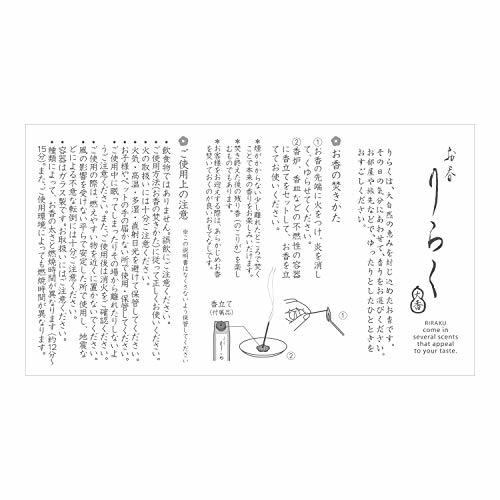 お香
りらく
大香
RIRAKU
come in
several scents
that appeal
to your taste.
りらくは、大自然の恵みを封じ込めたお香です。
その日の気分にあわせて、香りをお選びください。
お部屋や旅先などで、ゆったりとしたひとときを
おすごしください。
お香の焚きかた
①お香の先端に火をつけ、炎を消し
てくゆらせてください。
②香炉、香皿などの不燃性の容器
に香立てをセットして、お香を立
ててお使いください。
*煙がかからない少し離れたところで焚く
ことで本来の香りをお楽しみいただけます。
*焚き終えた後の残り香(のこりが)を楽し
むものでもあります。
*お客様をお迎えする際は、あらかじめお香
を焚いておくのが良いおもてなしです。
①
②
香立て
(付属品)
ご使用上の注意
※この説明書はなくさないよう保管してください。
・飲食物ではありません。誤飲にご注意ください。
・ご使用方法はお香の焚きかたに従って正しくお使いください。
・火の取扱いには十分ご注意ください。
・火気・高温・多湿・直射日光を避けて保管してください。
・お子様やペットの手の届かない所で使用・保管してください。
・ご使用中に眠ってしまったりその場から離れたりしないよ
うご注意ください。またご使用後は消火をご確認ください。
・ご使用の際は、燃えやすい物を近くに置かないでください。
・風の影響を受けない平らで安定した所で使用し、地震な
どによる不意な転倒には十分ご注意ください。
・容器はガラス製です。お取扱いにはご注意ください。
・種類によって、お香の太さと燃焼時間が異なります(約12分〜
15分)。また、ご使用環境によっても燃焼時間が異なります。